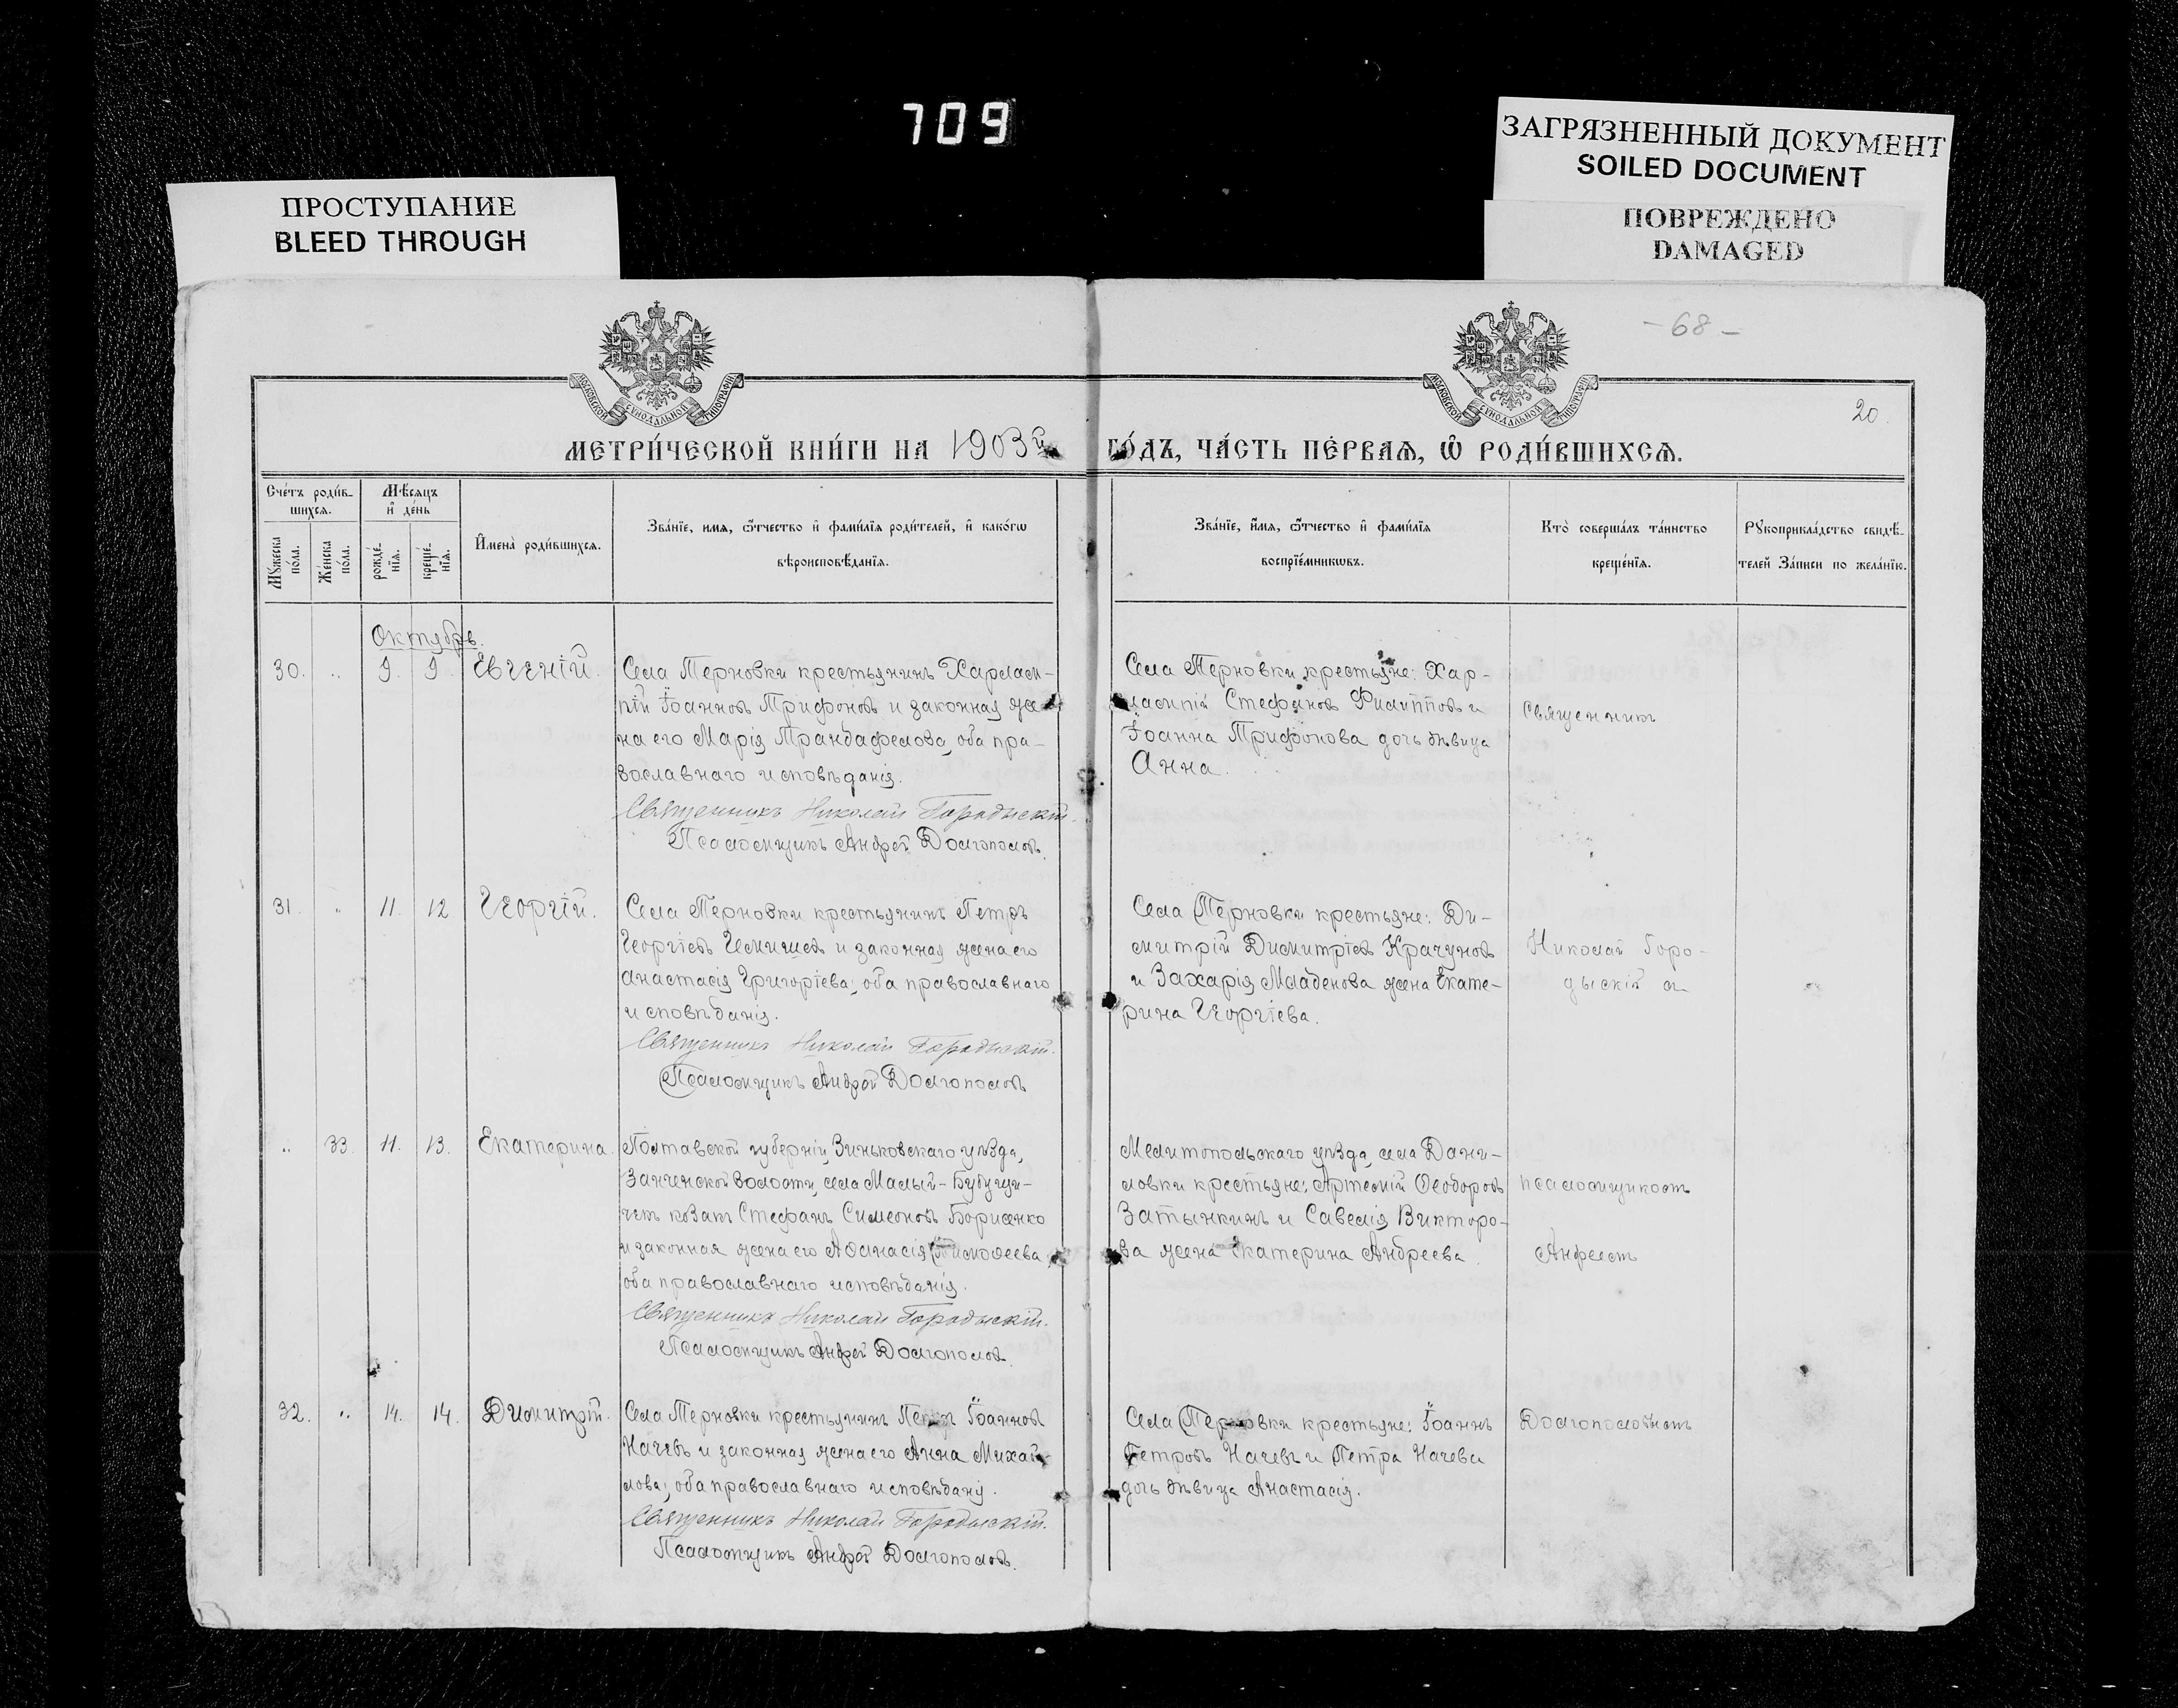 709
ПРОСТУПАНИЕ
BLEED THROUGH
ЗАГРЯЗНЕННЫЙ ДОКУМЕНТ
SOILED DOCUMENT
ПОВРЕЖДЕНО
DAMAGED
- 68 -
20.
МОСКОВСКОЙ СУНОДАЛЬНОЙ ТИПОГРАФІИ
МОСКОВСКОЙ СУНОДАЛЬНОЙ ТИПОГРАФІИ
МЕТРИ́ЧЕСКОЙ КНИ́ГИ НА 1903й ГО́ДЪ, ЧА́СТЬ ПЕ́РВАѦ, Ѡ РОДИ́ВШИХСѦ.
Сче́тъ роди́в-
шихсѧ.
Мꙋжеска по́ла.
Же́нска по́ла.
Мѣ́сѧцъ и҆ де́нь
рожде́-нїѧ.
креще́-нїѧ.
И҆мена̀ роди́вшихсѧ.
Зва́нїе, имѧ, ѻ҆́тчество и҆ фами́лїѧ роди́телей, и҆ како́гѡ
вѣроисповѣ́данїѧ.
Зва́нїе, и҆́мѧ, ѻ҆́тчество и҆ фами́лїѧ
воспрїе́мникѡвъ.
Кто̀ соверша́лъ та́инство
креще́нїѧ.
Рꙋкоприкла́дство свидѣ́-
телей За́писи по жела́нїю.
Октябрь.
30. „ 9. 9. Евгеній.
Села Терновки крестьянинъ Харлам-
пій Іоанновъ Трифоновъ и законная же-
на его Марія Трандафелова, оба пра-
вославнаго исповѣданія.
Священникъ Николай Городыскій.
Псаломщикъ Андрей Долгополовъ.
Села Терновки крестьяне: Хар-
лампій Стефановъ Филипповъ и
Іоанна Трифонова дочь дѣвица
Анна.
Священникъ
31. „ 11. 12 Георгій.
Села Терновки крестьянинъ Петръ
Георгіевъ и законная жена его
Анастасія Григоріева, оба православнаго
исповѣданія.
Священникъ Николай Городыскій.
Псаломщикъ Андрей Долгополовъ
Села Терновки крестьяне: Ди-
митрій Димитріевъ Крачуновъ
и Захарія Младенова жена Екате-
рина Георгіева.
Николай Горо-
дыскій съ
„ 33. 11. 13. Екатерина.
Полтавской губерніи, Зиньковскаго уѣзда,
волости, села Малый-
козакъ Стефанъ Симеоновъ Борисенко
и законная жена его Тимофеева
оба православнаго исповѣданія.
Священникъ Николай Городыскій.
Псаломщикъ Андрей Долгополовъ.
Мелитопольскаго уѣзда, села Дани-
ловки крестьяне: Артемій Ѳеодоровъ
Затынкинъ и Савелія Викторо-
ва жена Екатерина Андреева.
псаломщикомъ
Андреемъ
32. „ 14. 14. Димитрій.
Села Терновки крестьянинъ Петръ Іоанновъ
Начевъ и законная жена его Анна Михай-
лова; оба православнаго исповѣданія.
Священникъ Николай Городыскій.
Псаломщикъ Андрей Долгополовъ.
Села Терновки крестьяне: Іоаннъ
Петровъ Начевъ и Петра Начева
дочь дѣвица Анастасія.
Долгополовымъ